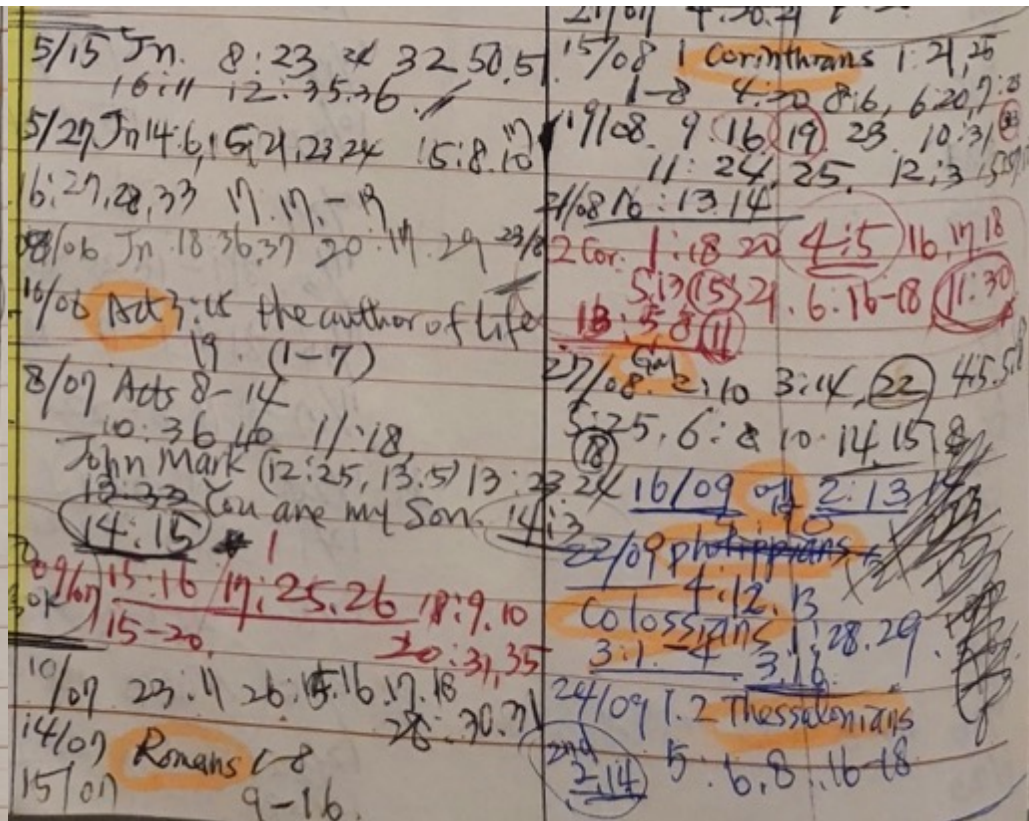 5/15 Jn. 8:23 24 32 50.51
16:11 12:35.36
5/27 Jn 14:6, 15, 21, 23 24 15:8.10
16:27, 28, 33 17.17,-19
/06 Jn 18 36,37 20:17. 29
/06 Act 3:15 the author of life
19. (1-7)
8/07 Acts 8-14
10:36,40 11:18,
John Mark (12:25, 13.5) 13:23.24
13:33 You are my Son. 14:3
14:15
15:16 17:25.26 18:9.10
15-20. 20:31,35
10/07 23:11 26: 16.17.18
28:30.31
14/07 Romans 1-8
15/07 9-16
15/08 1 Corinthians 1:21,25
1-8 4:20 8:6, 6:20,7:23
19/08. 9:16 19. 23 10:31
11:24, 25. 12:3
21/08 16:13.14
2 Cor. 1:18 20 4:5 16, 17, 18
5:13 15 21. 6:16-18 11:30
13:5 8 11
27/08 Gal 2:10 3:14, 22 4:5.
5:25, 6:8 10. 14, 15, 18
18
16/09 엡 2:13
22/09 philippians
4:12. 13
Colossians 1:28.29
3:1.-4 3,16
24/09 1.2 Thessalonians
2nd 2,14 5:6,8.16-18